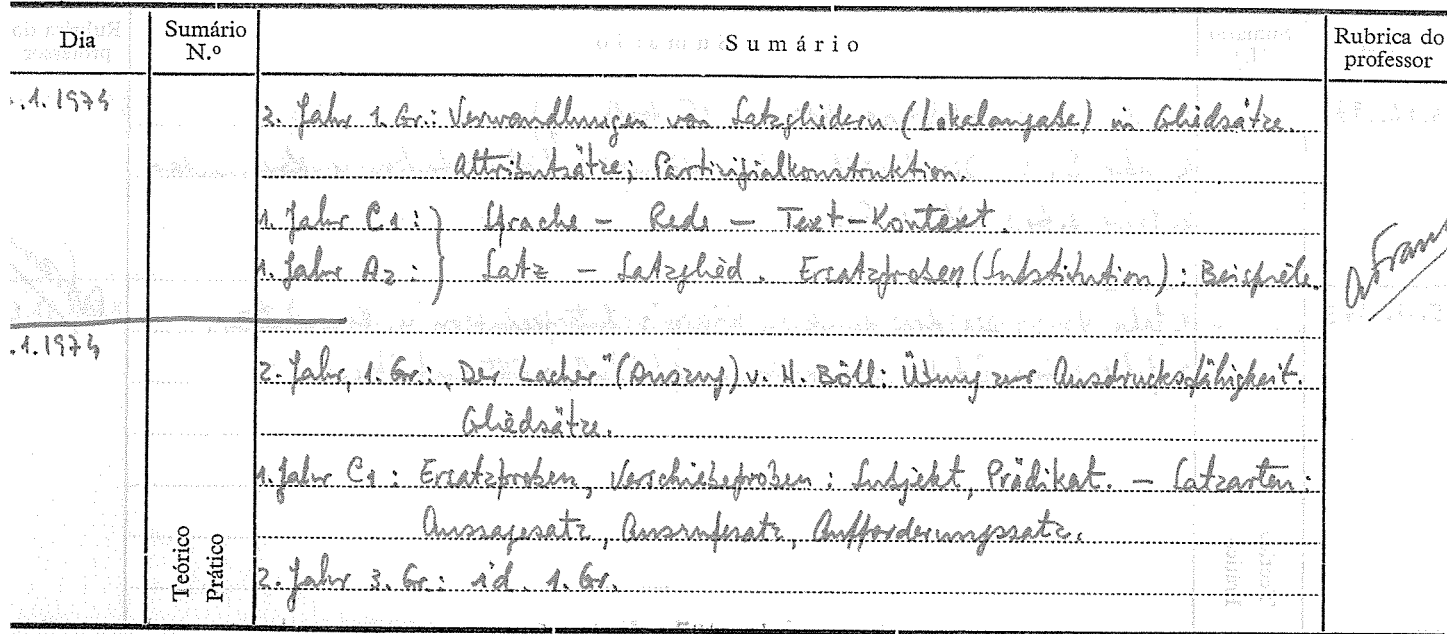 Dia
Sumário N.º
Sumário
Rubrica do professor
.1.1974
2. Jahr 1. Gr.: Verwandlungen von Satzgliedern (Lokalangabe) in Gliedsätze.
Attributsätze; Partizipialkonstruktion.
1. Jahr C1: } Sprache – Rede – Text – Kontext.
1. Jahr A2: } Satz – Satzglied. Ersatzproben (Substitution): Beispiele.
.1.1974
2. Jahr, 1. Gr.: „Der Lacher" (Auszug) v. H. Böll: Übung zur Ausdrucksfähigkeit.
Gliedsätze.
1. Jahr C1: Ersatzproben, Verschiebeproben; Subjekt, Prädikat. – Satzarten:
Aussagesatz, Ausrufesatz, Aufforderungssatz.
Teórico Prático
2. Jahr 3. Gr.: id. 1. Gr.